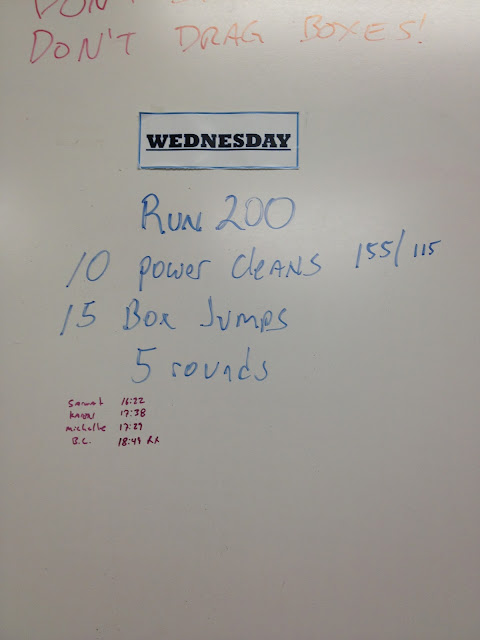 DON'T
DON'T DRAG BOXES!
WEDNESDAY
RUN 200
10 power cleans 155/115
15 Box Jumps
5 rounds
16:22
KAREN 17:38
michelle 17:29
B.C. 18:49 RX